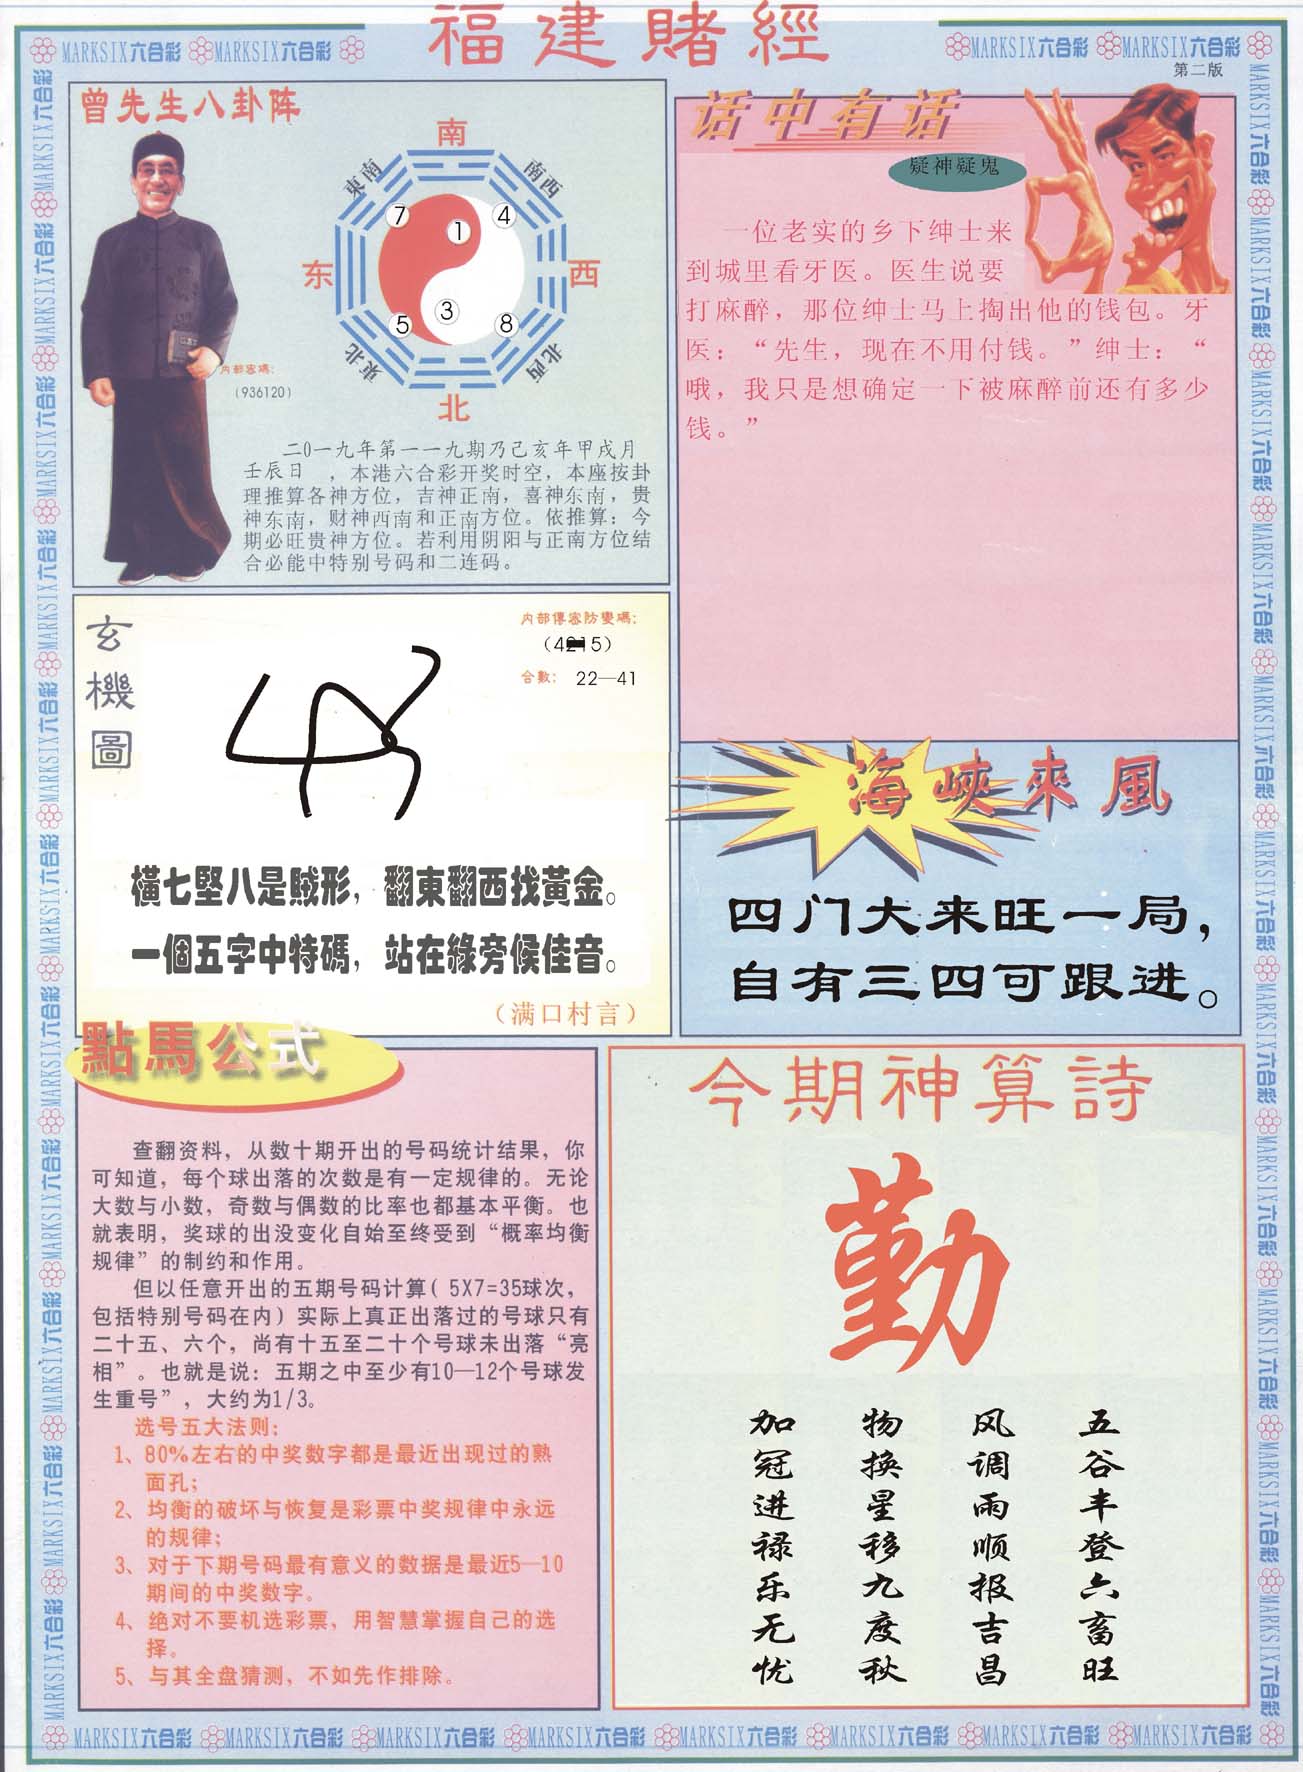 福建賭經
MARKSIX六合彩 MARKSIX六合彩
MARKSIX六合彩 MARKSIX六合彩
第二版
曾先生八卦阵
南
東南
南西
7
1
4
东
西
5
3
8
東北
北西
北
内部密碼：
（936120）
二0一九年第一一九期乃己亥年甲戌月
壬辰日，本港六合彩开奖时空，本座按卦
理推算各神方位，吉神正南，喜神东南，贵
神东南，财神西南和正南方位。依推算：今
期必旺贵神方位。若利用阴阳与正南方位结
合必能中特别号码和二连码。
话中有话
疑神疑鬼
一位老实的乡下绅士来
到城里看牙医。医生说要
打麻醉，那位绅士马上掏出他的钱包。牙
医：“先生，现在不用付钱。”绅士：“
哦，我只是想确定一下被麻醉前还有多少
钱。”
玄機圖
内部傳密防變碼：
合數： 22—41
橫七堅八是賊形，翻東翻西找黃金。
一個五字中特碼，站在綠旁候佳音。
（满口村言）
海峽來風
四门大来旺一局，
自有三四可跟进。
點馬公式
查翻资料，从数十期开出的号码统计结果，你
可知道，每个球出落的次数是有一定规律的。无论
大数与小数，奇数与偶数的比率也都基本平衡。也
就表明，奖球的出没变化自始至终受到“概率均衡
规律”的制约和作用。
但以任意开出的五期号码计算( 5X7=35球次，
包括特别号码在内）实际上真正出落过的号球只有
二十五、六个，尚有十五至二十个号球未出落“亮
相”。也就是说：五期之中至少有10—12个号球发
生重号”，大约为1/3。
选号五大法则：
1、80%左右的中奖数字都是最近出现过的熟
面孔；
2、均衡的破坏与恢复是彩票中奖规律中永远
的规律；
3、对于下期号码最有意义的数据是最近5—10
期间的中奖数字。
4、绝对不要机选彩票，用智慧掌握自己的选
择。
5、与其全盘猜测，不如先作排除。
今期神算詩
勤
五谷丰登六畜旺
风调雨顺报吉昌
物换星移九度秋
加冠进禄乐无忧
MARKSIX六合彩 MARKSIX六合彩 MARKSIX六合彩 MARKSIX六合彩 MARKSIX六合彩 MARKSIX六合彩 MARKSIX六合彩 MARKSIX六合彩